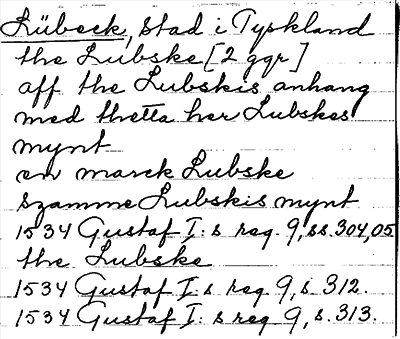 Lübeck, stad i Tyskland
the Lubske [2 ggr]
aff the Lubskis anhang
med thetta her Lubskes
mynt
en marck Lubske
szamme Lubskis mynt
1534 Gustaf I:s reg. 9, ss. 304, 05
the Lubske
1534 Gustaf I:s reg 9, s. 312.
1534 Gustaf I:s reg 9, s. 313.